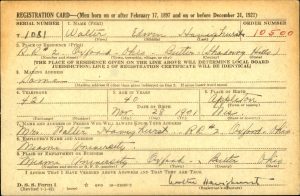 REGISTRATION CARD—(Men born on or after February 17, 1897 and on or before December 31, 1921)
SERIAL NUMBER 1. NAME (Print) ORDER NUMBER
1081 Walter Havighurst 10500
2. PLACE OF RESIDENCE (Print)
R.R. #2 Oxford, Ohio Butler
[THE PLACE OF RESIDENCE GIVEN ON THE LINE ABOVE WILL DETERMINE LOCAL BOARD
JURISDICTION; LINE 2 OF REGISTRATION CERTIFICATE WILL BE IDENTICAL]
3. MAILING ADDRESS
Same
4. TELEPHONE 5. AGE IN YEARS 6. PLACE OF BIRTH
421 40 Appleton
Nov. 28 1901 Wis.
7. NAME AND ADDRESS OF PERSON WHO WILL ALWAYS KNOW YOUR ADDRESS
Mrs. Walter Havighurst R.R. #2, Oxford, Ohio
8. EMPLOYER'S NAME AND ADDRESS
Miami University
9. PLACE OF EMPLOYMENT OR BUSINESS
Miami University Oxford Butler Ohio
I AFFIRM THAT I HAVE VERIFIED ABOVE ANSWERS AND THAT THEY ARE TRUE.
D. S. S. Form 1
Walter Havighurst